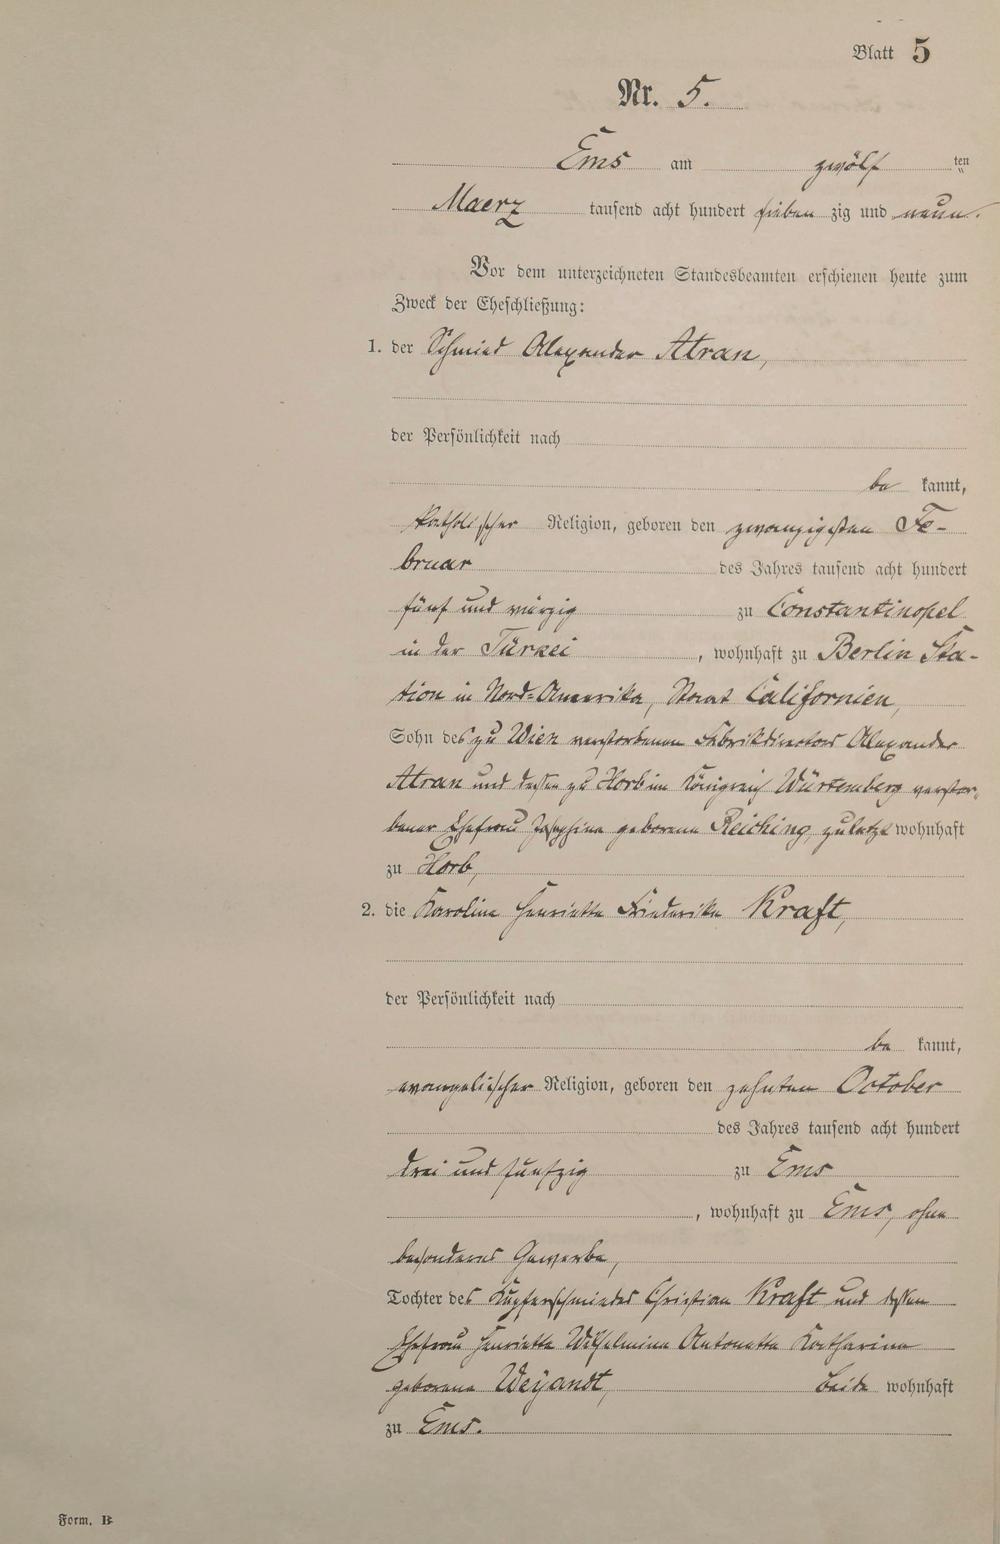 Blatt 5
Nr. 5.
Ems am zwölf ten
Maerz tausend acht hundert sieben zig und neun.
Vor dem unterzeichneten Standesbeamten erschienen heute zum
Zweck der Eheschließung:
1. der Schmied Alexander Atran,
der Persönlichkeit nach
be kannt,
katholischer Religion, geboren den zwanzigsten Fe-
bruar des Jahres tausend acht hundert
fünf und vierzig zu Constantinopel
in der Türkei, wohnhaft zu Berlin Sta-
tion in Nord-Amerika, Staat Californien,
Sohn des zu Wien verstorbenen Fabrikdirectors Alexander
Atran und dessen zu Horb im Königreich Würtemberg verstor-
bener Ehefrau Josephina geborene Reiching, zuletzt wohnhaft
zu Horb,
2. die Karoline Henriette Friederike Kraft,
der Persönlichkeit nach
be kannt,
evangelischer Religion, geboren den zehnten October
des Jahres tausend acht hundert
drei und fünfzig zu Ems
, wohnhaft zu Ems, ohne
besonderes Gewerbe,
Tochter des Kupferschmiedes Christian Kraft und dessen
Ehefrau Henriette Wilhelmine Antonette Katharina
geborene Weÿandt, beide wohnhaft
zu Ems.
Form. B.